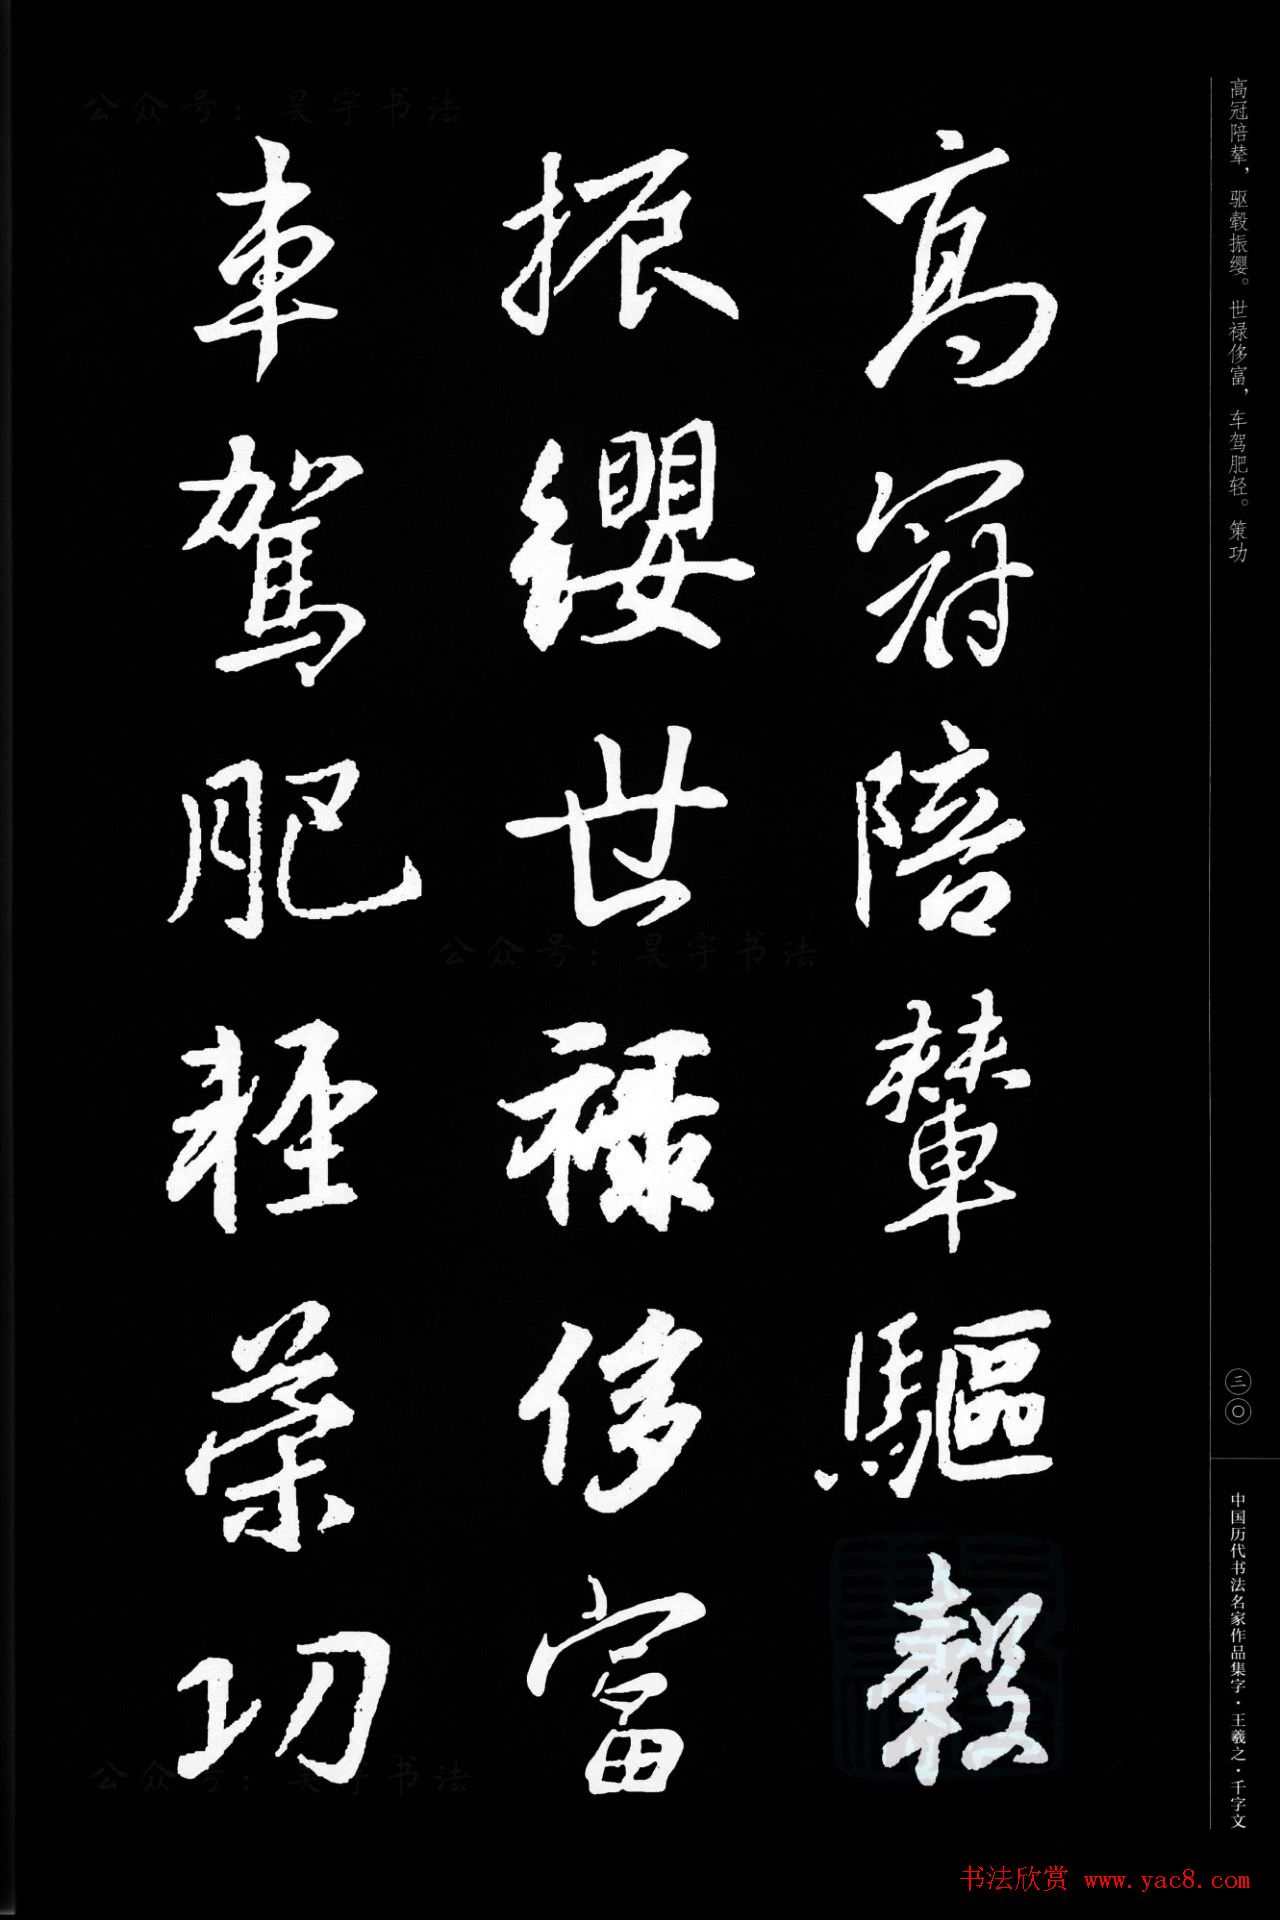 高冠陪輦驅轂
振纓世禄侈富
車駕肥輕策功
高冠陪辇，驱毂振缨。世禄侈富，车驾肥轻。策功
三〇
中国历代书法名家作品集字·王羲之·千字文
公众号：昊宇书法
公众号：昊宇书法
公众号：昊宇书法
书法欣赏 www.yac8.com